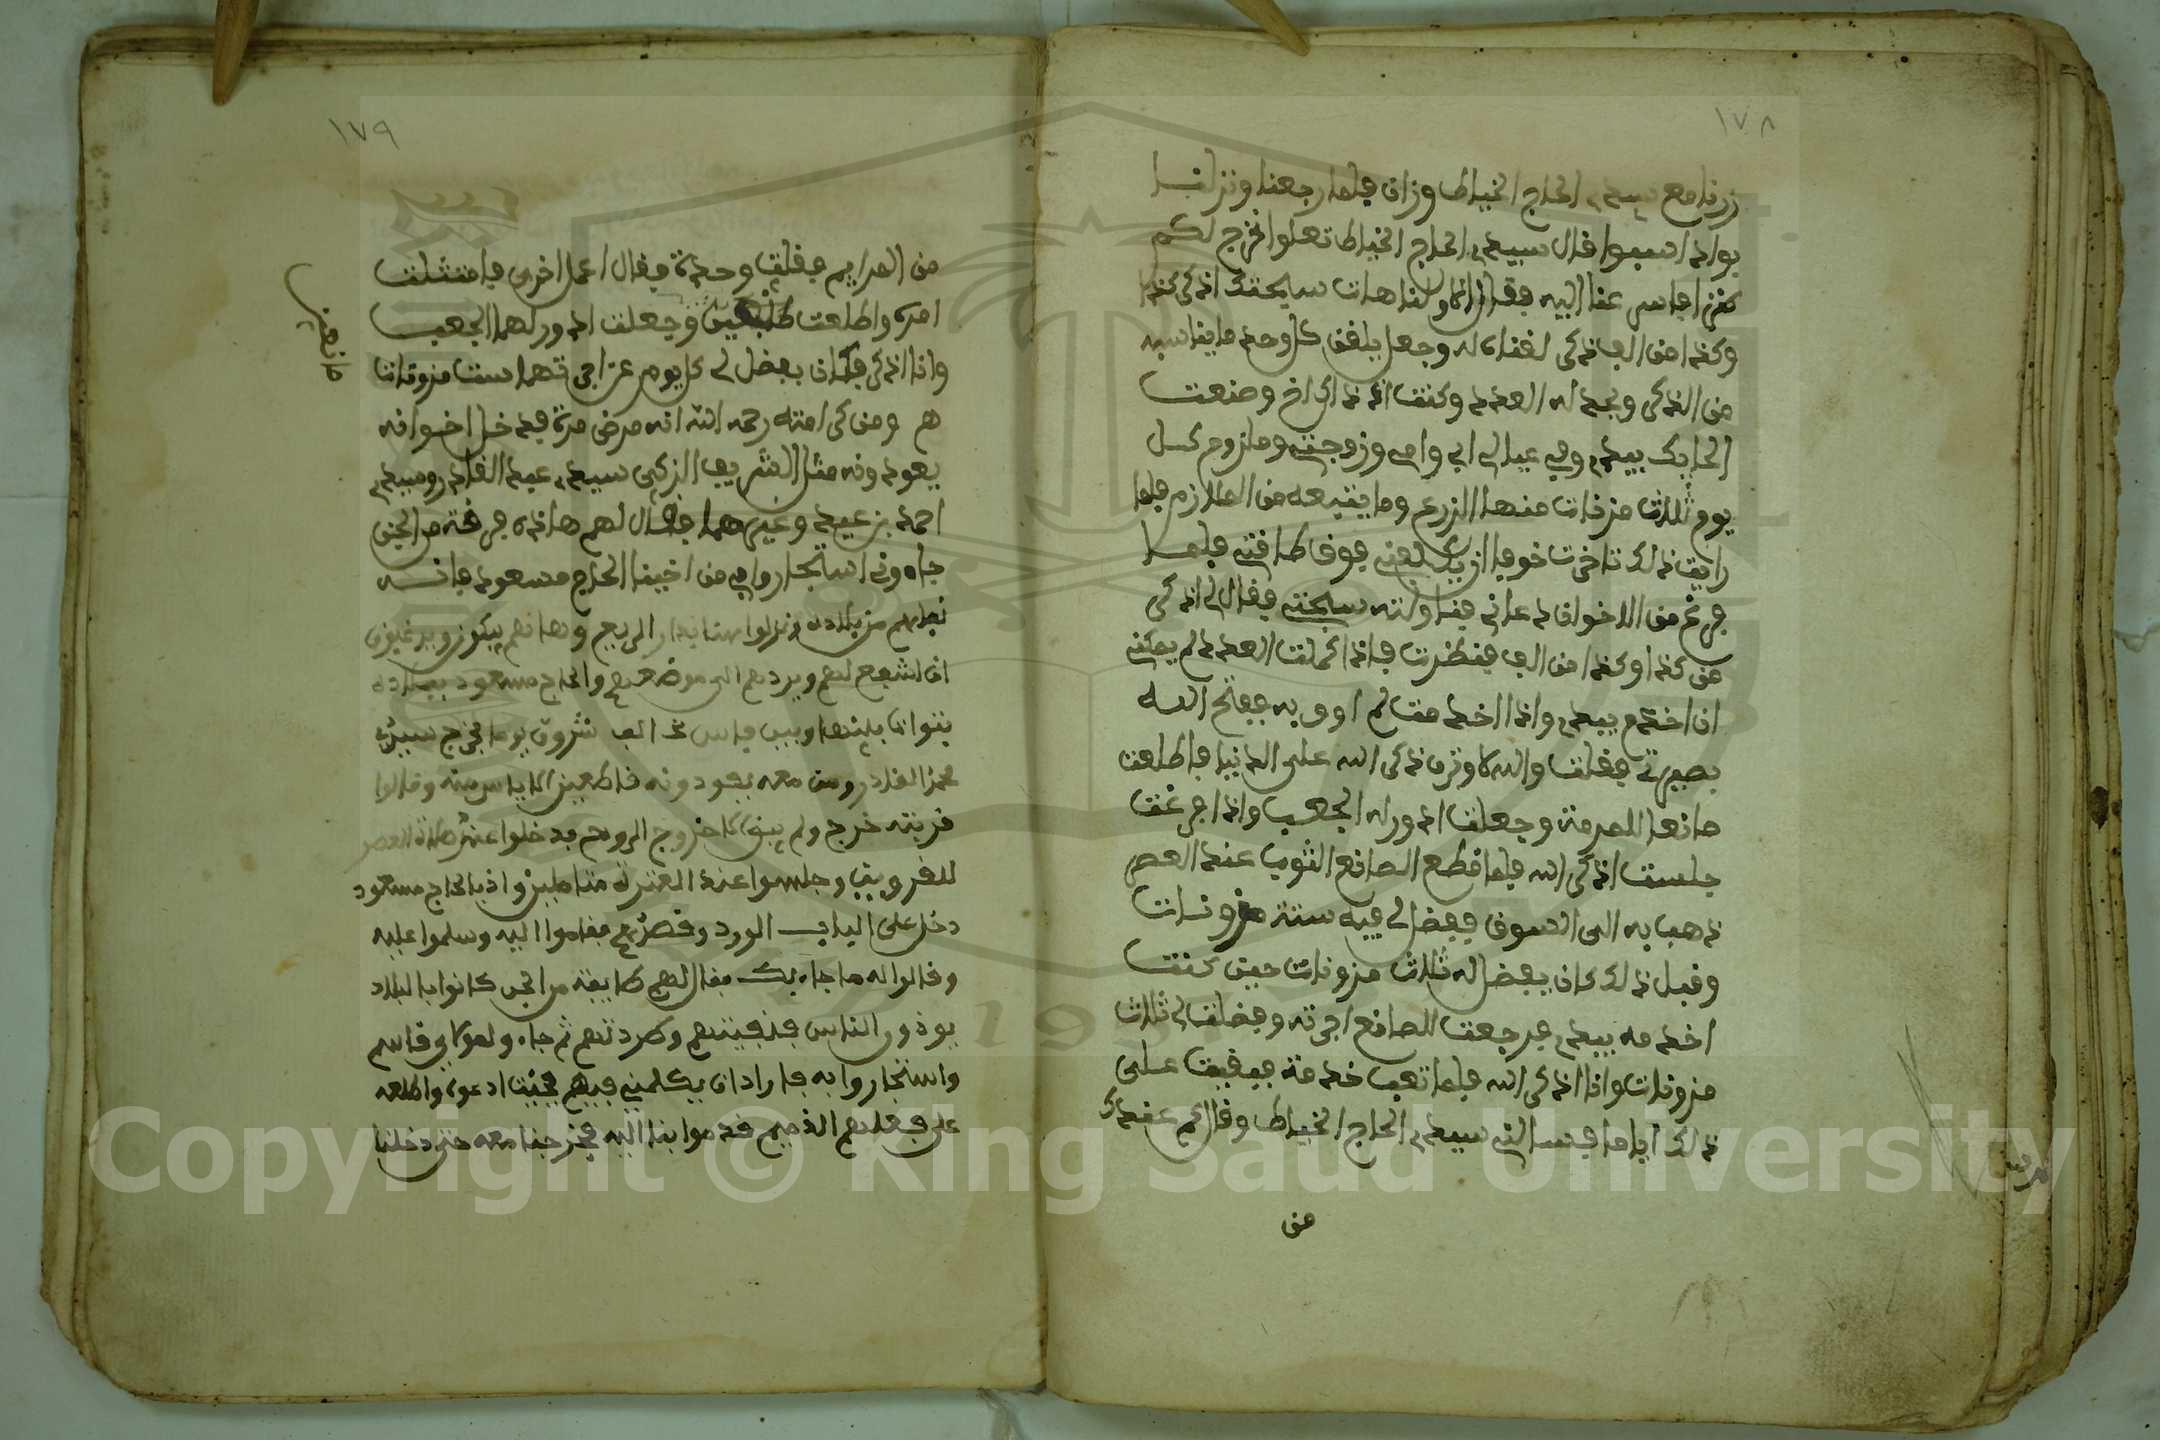 ١٧٨
زرنا مع سيدي الحاج الخياط وزان فلما رجعنا ونزلنا
بواد اسبوا قال سيدي الحاج الخياط تعلوا نخرج لكم
وكذا من الف ذكر لقناه له وجعل يلقن كل وحد ما يناسبه
من الذكر ويحد له العدد وكنت اذ ذاك اخ وصنعت
الحايك بيدي وفي عيالي ابي وامي وزوجتي وملزوم كل
يوم ثلاث مزنات منها الزرع وما يتبعه من الملازم فلما
رايت ذلك تاخرت خوفا ان يلقنني فوق طاقتي فلما
فرغ من الاخوان دعاني فناولته سبحتي فقال لي اذكر
من كذا وكذا من الف فنظرت فاذا كملت العدد لم يمكني
ان اخدم بيدي واذا اخدمت لم اوف به ففتح الله
بصيرتي فقلت والله لاوثرن ذكر الله على الدنيا فاطلعت
صانعا للمرمة وجعلت ادور له الجعب واذا فرغت
جلست اذكر الله فلما قطع الصانع الثوب عند العصر
ذهب به الى السوق ففضل لي فيه ستة مزونات
وقبل ذلك كان يفضل له ثلاث مزونات حين كنت
اخدمه بيدي فرجعت للصانع اجرته وفضلت لي ثلاث
مزونات وانا اذكر الله فلما تعب خدمة فبقيت على
ذلك اياما فسالني سيدي الحاج الخياط وقال كم عندك
من
١٧٩
من المرايم فقلت وحدة فقال اعمل اخرى فامتثلت
امره واطلعت طلبعين وجعلت ادور لهما الجعب
وانا اذكر فكان يفضل لي كل يوم عن اجرتهما ست مزونات
هـ ومن كرامته رحمه الله انه مرض مرة فدخل اخوانه
يعودونه مثل الشريف الزكي سيدي عبد القادر وسيدي
احمد بن عبيد وغيرهما فقال لهم هاذه فرقة من الجن
جاءوني استجاروا بي من اخينا الحاج مسعود فانه
نفاهم من بلاده ونزلوا هنا بدار الربع وها نحن يبكون ويرغبون
ان اشفع لهم ويردهم الى موضعهم والحاج مسعود ببلاده
محمد القادر ومن معه يعودونه قاطعين الاياس منه وقالوا
قريته خرج ولم يبق الا خروج الروح فدخلوا عند صلاة العصر
للقرويين وجلسوا عند العنزة متاملين واذ بالحاج مسعود
دخل على الباب الورد وقصدهم فقاموا اليه وسلموا عليه
وقالوا له ما جاء بك فقال لهم طايفة من الجن كانوا بالبلاد
يوذون الناس فنفيتهم وطردتهم ثم جاءوا لمولاي قاسم
واستجاروا به فاراد ان يكلمني فيهم فجيت ادعوه واطلعه
على فعلهم الذميم قدموا بنا اليه فخرجنا معه حتى دخلنا